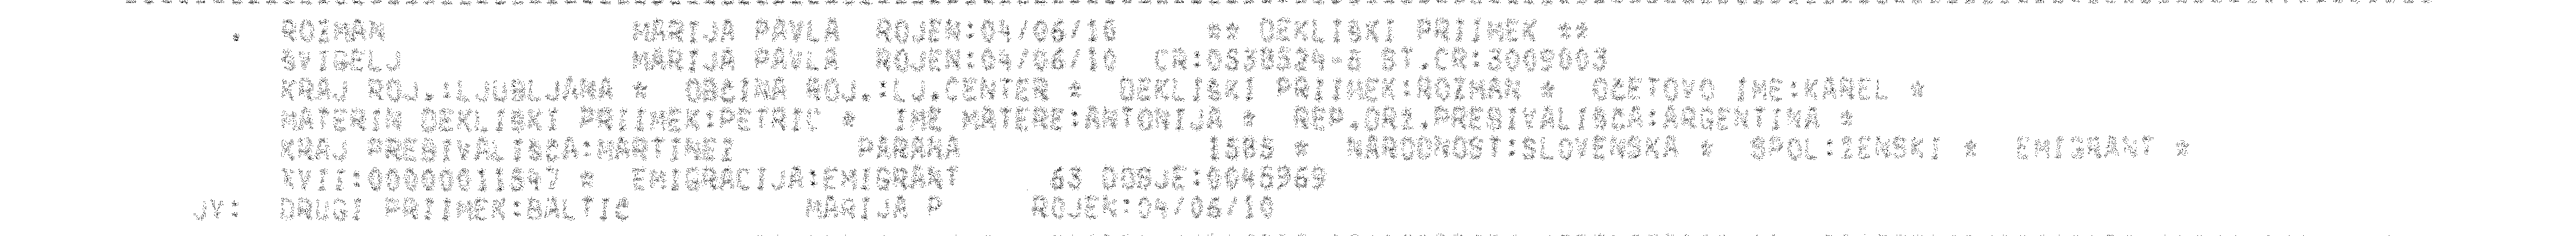 . ROZMAN MARIJA PAVLA ROJEN:04/06/10 ** DEKLIŠKI PRIIMEK **
ŠVIGELJ MARIJA PAVLA ROJEN:04/06/10 CR:0538524-8 ST.CR:3009003
KRAJ ROJ.:LJUBLJANA * OBČINA ROJ.:LJ.CENTER * DEKLIŠKI PRIIMEK:ROZMAN * OČETOVO IME:KAREL *
MATERIN DEKLIŠKI PRIIMEK:PETRIČ * IME MATERE:ANTONIJA * REP.DRŽ.PREBIVALIŠČA:ARGENTINA *
KRAJ PREBIVALIŠČA:MARTINEZ PARANA 1585 * NARODNOST:SLOVENSKA * SPOL:ŽENSKI * EMIGRANT *
XVII:00000011847 * EMIGRACIJA:EMIGRANT 63 DOSJE:0046969
JV: DRUGI PRIIMEK:BALTIČ MARIJA P ROJEN:04/06/10